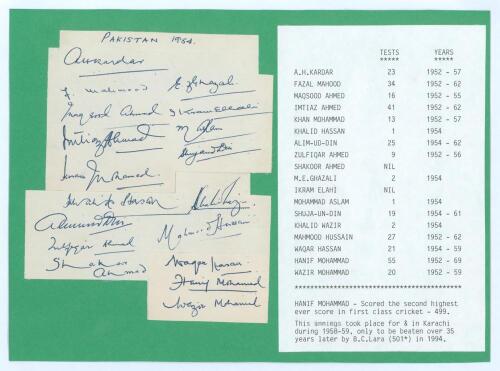 PAKISTAN 1954.
AHKardar
F. Mahmood
Maqsood Ahmed
Imtiaz Ahmed
Khan Mohamed
Khalid Hassan
Alimuddin
Zulfiqar Ahmed
Shakoor Ahmad
E Ghazali
Ikram Elahi
M Aslam
Shujauddin
Khalid Wazir
Mahmood Hussain
Waqar Hasan
Hanif Mohamed
Wazir Mohamed
TESTS YEARS
***** *****
A.H.KARDAR 23 1952 - 57
FAZAL MAHOOD 34 1952 - 62
MAQSOOD AHMED 16 1952 - 55
IMTIAZ AHMED 41 1952 - 62
KHAN MOHAMMAD 13 1952 - 57
KHALID HASSAN 1 1954
ALIM-UD-DIN 25 1954 - 62
ZULFIQAR AHMED 9 1952 - 56
SHAKOOR AHMED NIL
M.E.GHAZALI 2 1954
IKRAM ELAHI NIL
MOHAMMAD ASLAM 1 1954
SHUJA-UN-DIN 19 1954 - 61
KHALID WAZIR 2 1954
MAHMOOD HUSSAIN 27 1952 - 62
WAQAR HASSAN 21 1954 - 59
HANIF MOHAMMAD 55 1952 - 69
WAZIR MOHAMMAD 20 1952 - 59
******************************************
HANIF MOHAMMAD - Scored the second highest
ever score in first class cricket - 499.
This innings took place for & in Karachi
during 1958-59. only to be beaten over 35
years later by B.C.Lara (501*) in 1994.